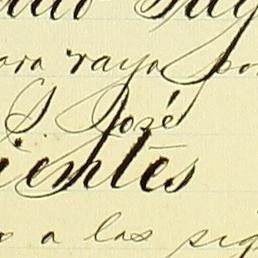 para raya por
S. José
ientes
a las sig